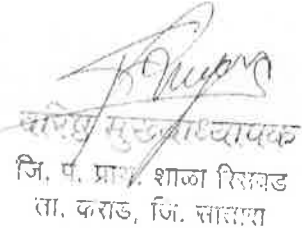 वरिष्ठ मुख्याध्यापक
जि. प. प्राथ. शाळा रिसवड
ता. कराड, जि. सातारा